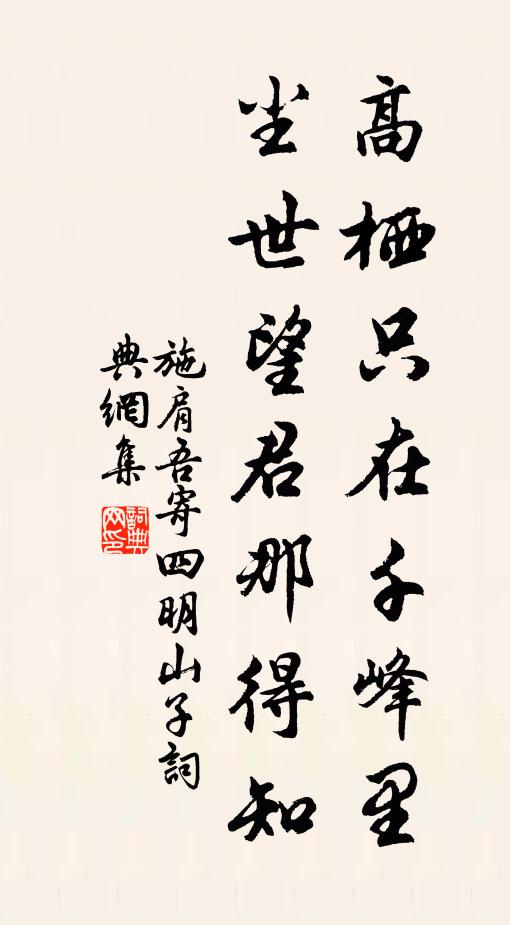 高栖只在千峰里
尘世望君那得知
施肩吾寄四明山子詞
典網集
詞典
网印